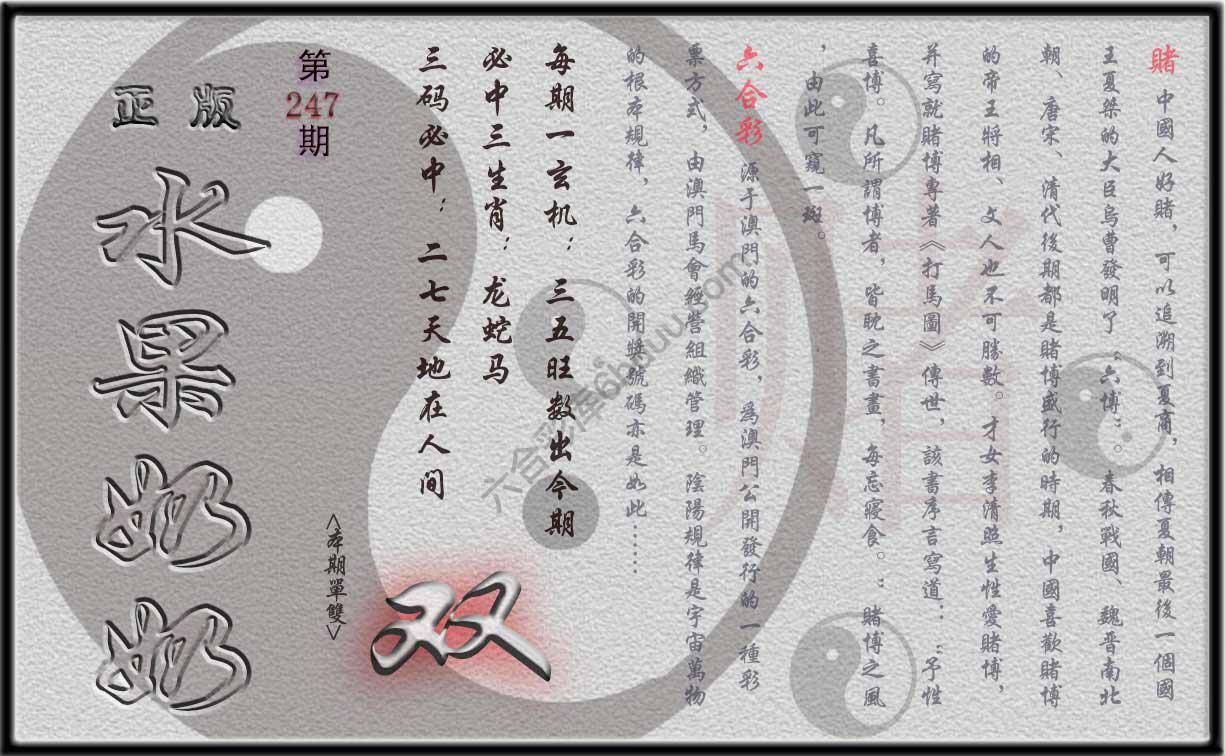 賭 中國人好賭，可以追溯到夏商，相傳夏朝最後一個國
王夏桀的大臣烏曹發明了“六博”。春秋戰國、魏晋南北
朝、唐宋、清代後期都是賭博盛行的時期，中國喜歡賭博
的帝王將相、文人也不可勝數。才女李清照生性愛賭博，
并寫就賭博專著《打馬圖》傳世，該書序言寫道：“予性
喜博。凡所謂博者，皆眈之書畫，每忘寢食。”賭博之風
，由此可窺一斑。
六合彩 源于澳門的六合彩，為澳門公開發行的一種彩
票方式，由澳門馬會經營組織管理。陰陽規律是宇宙萬物
的根本規律，六合彩的開獎號碼亦是如此……
每期一玄机：三五旺数出今期
必中三生肖：龙蛇马
三码必中：二七天地在人间
<本期單雙>
双
第
247
期
正版
水果奶奶
賭
六合彩库6htuuu.com